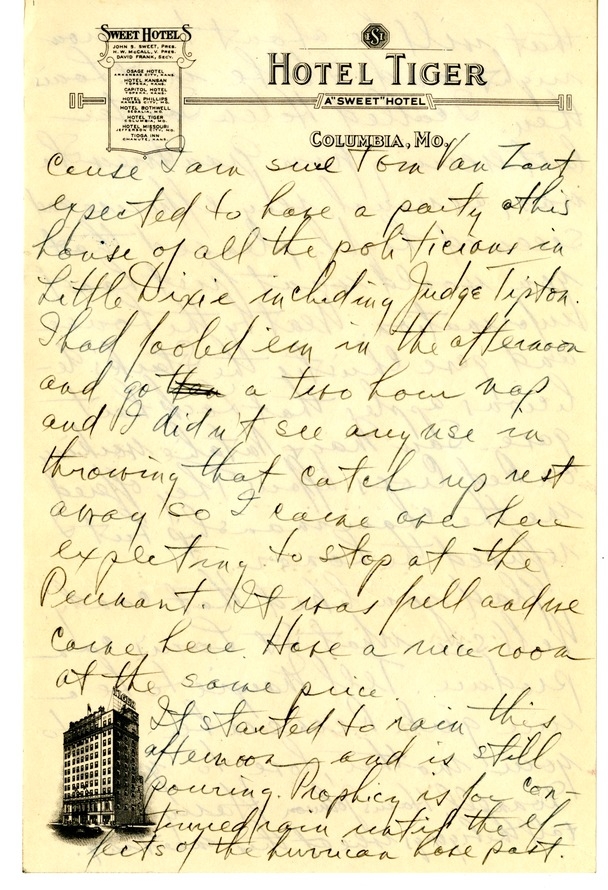 SWEET HOTELS
JOHN S. SWEET, PRES.
H. W. McCALL, V. PRES.
DAVID FRANK, SECY.
OSAGE HOTEL
ARKANSAS CITY, KANS.
HOTEL KANSAN
TOPEKA, KANS.
CAPITOL HOTEL
TOPEKA, KANS.
HOTEL PHILLIPS
KANSAS CITY, MO.
HOTEL BOTHWELL
SEDALIA, MO.
HOTEL TIGER
COLUMBIA, MO.
HOTEL MISSOURI
JEFFERSON CITY, MO.
TIOGA INN
CHANUTE, KANS.
HOTEL TIGER
A "SWEET" HOTEL
COLUMBIA, MO.
cause I am sure Tom Van Zant
expected to have a party at his
house of all the politicians in
Little Dixie including Judge Tipton.
I had fooled 'em in the afternoon
and got a two hour nap
and I didn't see any use in
throwing that catch up rest
away so I came over here
expecting to stop at the
Pennant. It was full and we
came here. Have a nice room
at the same price.
It started to rain this
afternoon and is still
pouring. Prophicy is for con-
tinued rain until the ef-
fects of the hurrican have past.
TIGER